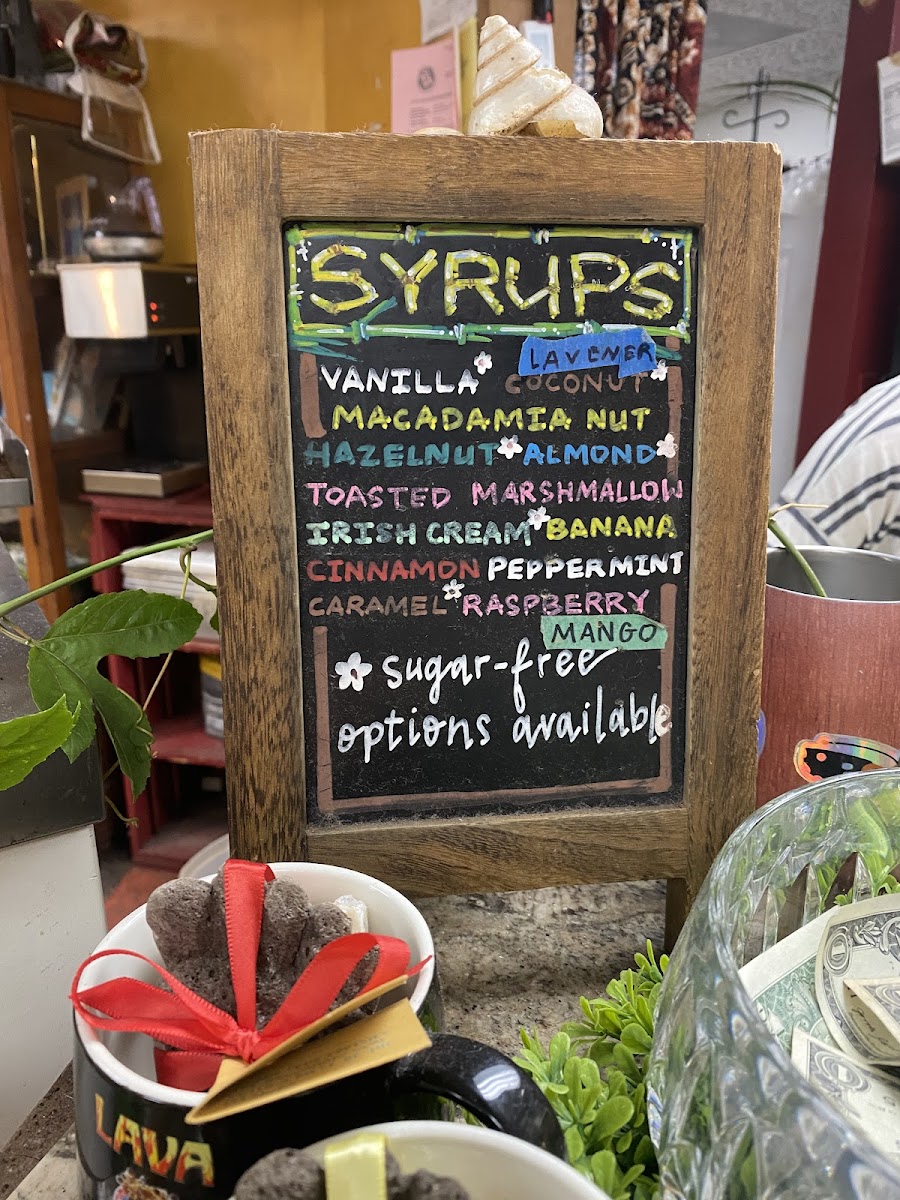 SYRUPS
LAVENER
VANILLA COCONUT
MACADAMIA NUT
HAZELNUT ALMOND
TOASTED MARSHMALLOW
IRISH CREAM BANANA
CINNAMON PEPPERMINT
CARAMEL RASPBERRY
MANGO
sugar-free
options available
LAVA